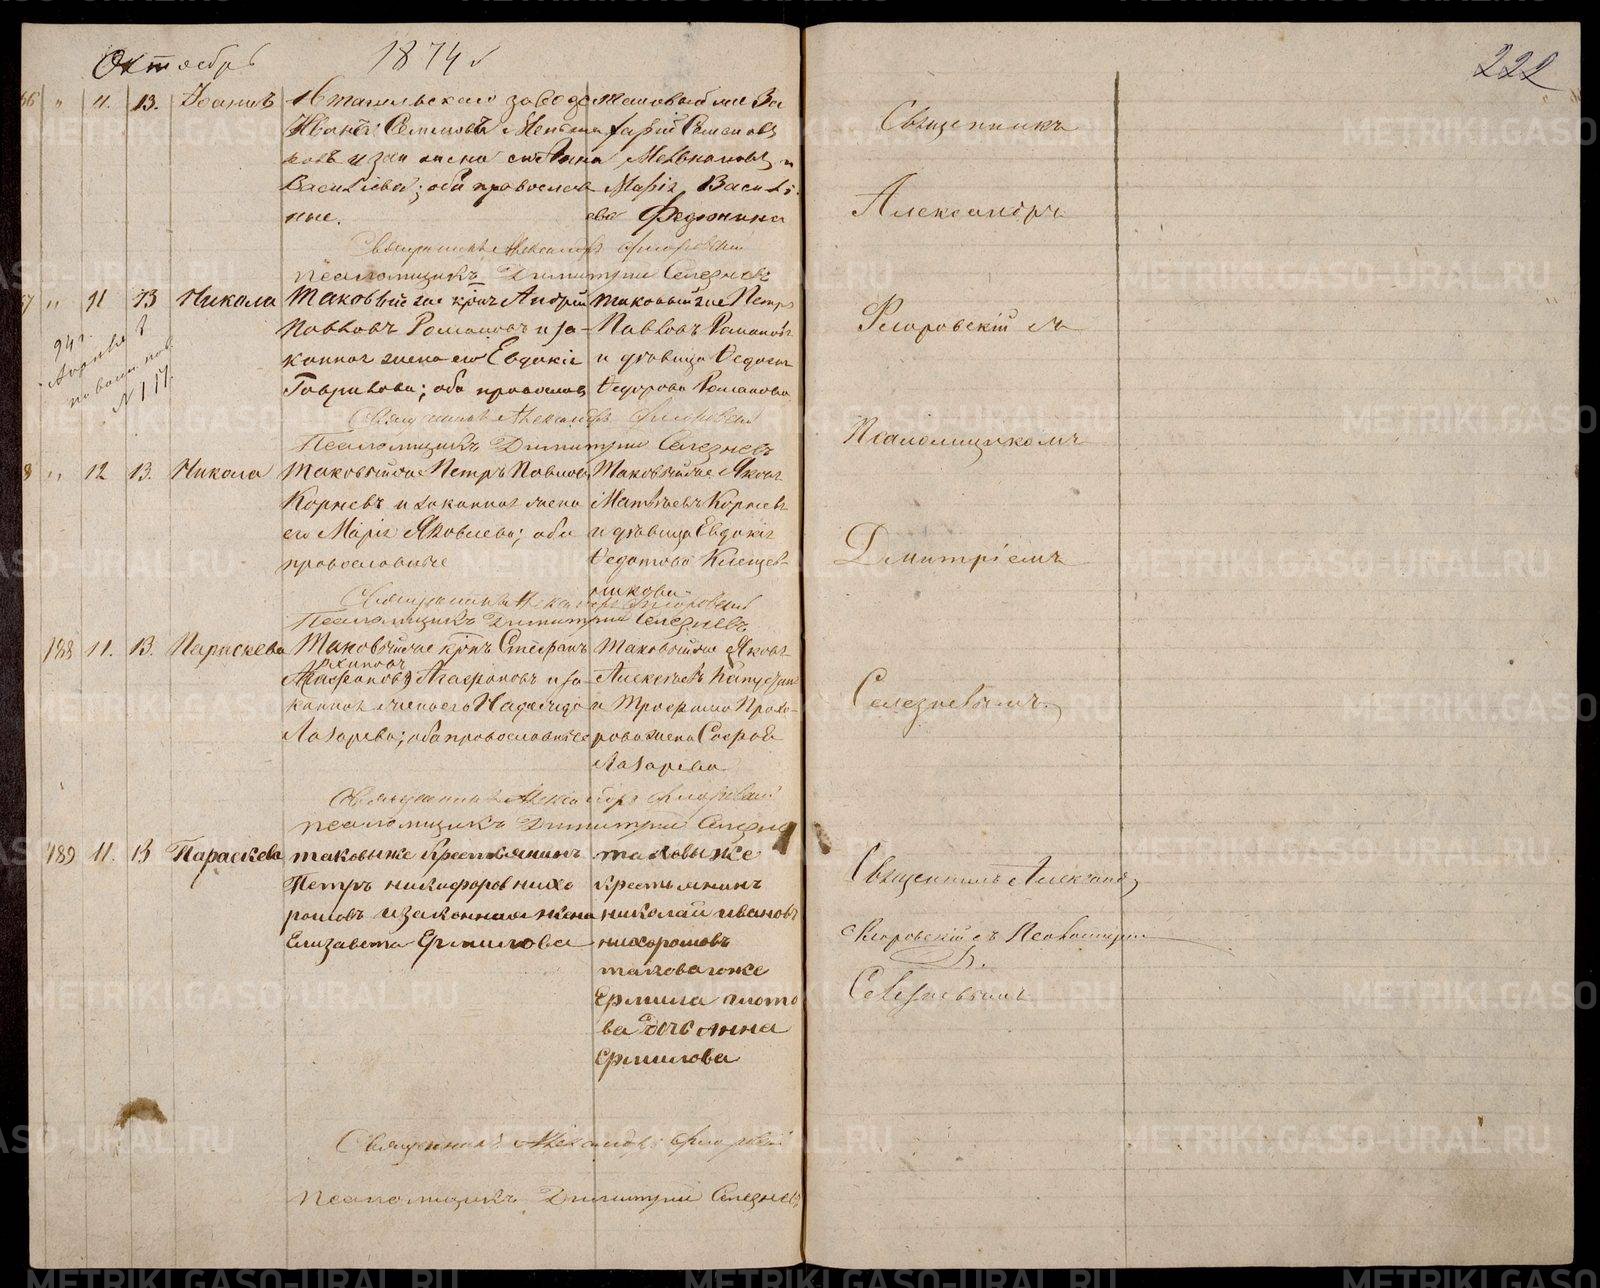 Октябрь 1874 г
222
66 " 11. 13. Иоаннъ
Иванъ Семеновъ
ковъ и зак жена его Анна
Василіева; оба православ
ные.
таковый же За
харій Семеновъ
и
Марія Василі
ева Федюнина
Священникъ Александръ Флоровскій
Псаломщикъ Димитрій Селезневъ
67 " 11 13 Никола
Таковый же крнъ Андрей
Павловъ Романовъ и за-
конная жена его Евдокія
Гаврилова; оба православ
таковый же Петръ
Павловъ Романовъ
и дѣвица Ѳедосья
Ѳедорова Романова
94 г.
Апрѣля
N 117.
Священникъ Александръ Флоровскій
Псаломщикъ Димитрій Селезневъ
8 " 12 13. Никола
Таковый же Петръ Павловъ
Корневъ и законная жена
его Марія Яковлева; оба
православные
Таковый же Яковъ
Матвѣевъ Корневъ
и дѣвица Евдокія
Ѳедотова Клещев-
никова
Священникъ Александръ Флоровскій
Псаломщикъ Димитрій Селезневъ
188 11. 13. Параскева
Таковый же крнъ Стефанъ
Архиповъ
Агафоновъ и за-
конная жена его Надежда
Лазарева; оба православные
Таковый же Яковъ
Алексѣевъ
и Трофима Прохо-
рова жена Софья
Лазарева
Священникъ Александръ Флоровскій
Псаломщикъ Димитрій Селезнев
189 11. 13 Параскева
таковы же Крестьянинъ
Петръ никифоров нихо
рошовъ и законная жена
Елизавета Ермилова
таковы же
крестьянинъ
николаи ивановъ
нихорошовъ
таковаго же
Ермила плото
ва дочь Анна
Ермилова
Священникъ Александръ Флоровскій
Псаломщикъ Димитрій Селезневъ
Священникъ
Александръ
Флоровскій съ
Псаломщикомъ
Димитріемъ
Селезневымъ.
Священникъ Александръ
Флоровскій съ Псаломщикомъ
Д.
Селезневымъ
METRIKI.GASO-URAL.RU